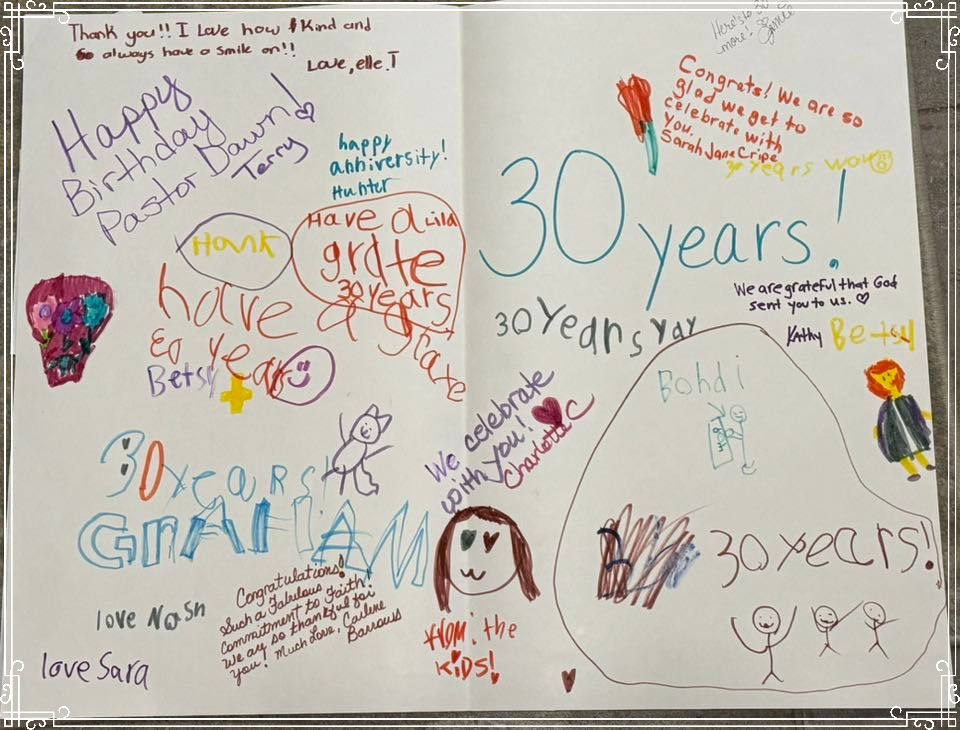 Thank you!! I Love how Kind and
always have a smile on!!
Love, elle.T
Here's to 30
more!
Happy
Birthday
Pastor Dawn!
Terry
happy
anniversity!
Hunter
Congrats! We are so
glad we get to
celebrate with
you.
Sarah Jane Cripe
30 years wow
30 years!
Hank
Have a Lila
grate
30 years
have a grate
30 year
Betsy
We are grateful that God
sent you to us.
Kathy Betsy
30 Years Yay
Bohdi
We celebrate
with you!
Charlotte C
30 years!
GRAHAM
30 years!
Congratulations!
Such a Fabulous
Commitment to Faith!
We are so thankful for
you! Much Love, Carlene
Barrows
love Nash
love Sara
from. the
KiDS!